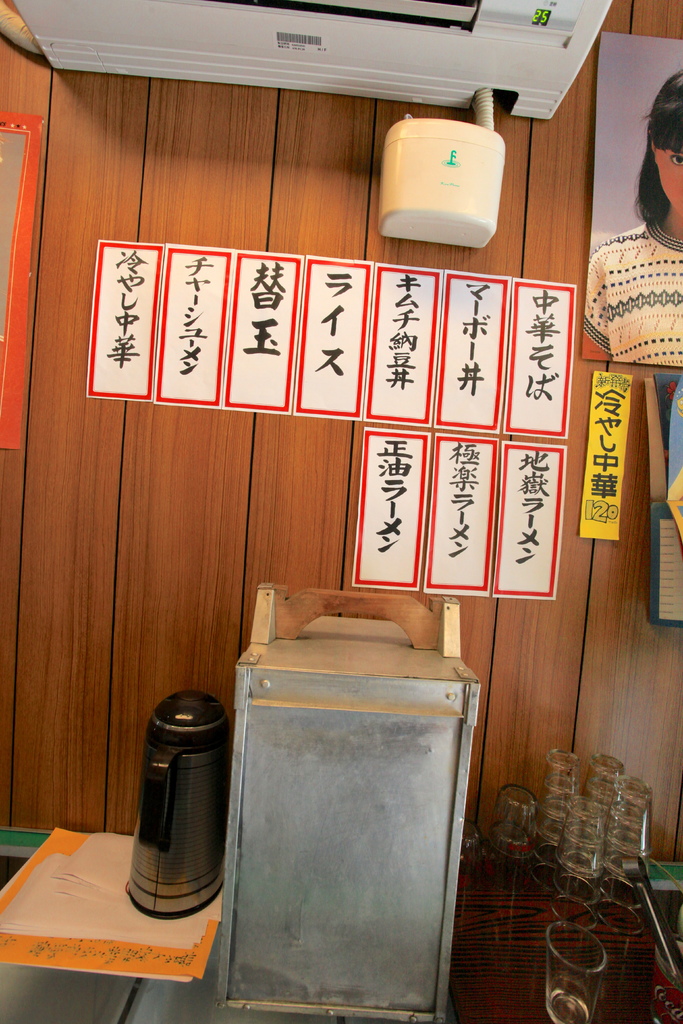 25
中華そば
マーボー丼
キムチ納豆丼
ライス
替玉
チャーシューメン
冷やし中華
地獄ラーメン
極楽ラーメン
正油ラーメン
冷やし中華
120